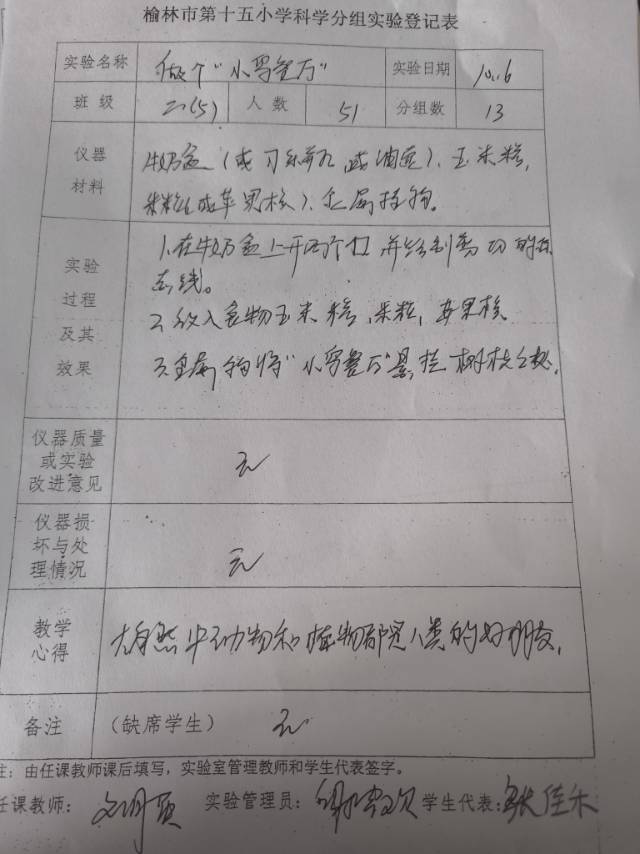 榆林市第十五小学科学分组实验登记表
实验名称 做个“小鸟餐厅” 实验日期 10.6
班级 二(5) 人数 51 分组数 13
仪器 牛奶盒(或可乐瓶 或油壶)、玉米粒,
材料 米粒(或苹果核)、金属挂钩。
实验 1.在牛奶盒上开两个口 并绘制剪切的
过程 线。
及其 2.放入食物玉米粒,米粒,苹果核
效果 3.金属钩将“小鸟餐厅”悬挂树枝
仪器质量
或实验 无
改进意见
仪器损
坏与处 无
理情况
教学 大自然中动物和植物都是人类的好朋友,
心得
备注 (缺席学生) 无
注:由任课教师课后填写,实验室管理教师和学生代表签字。
任课教师: 实验管理员: 学生代表: 佳禾